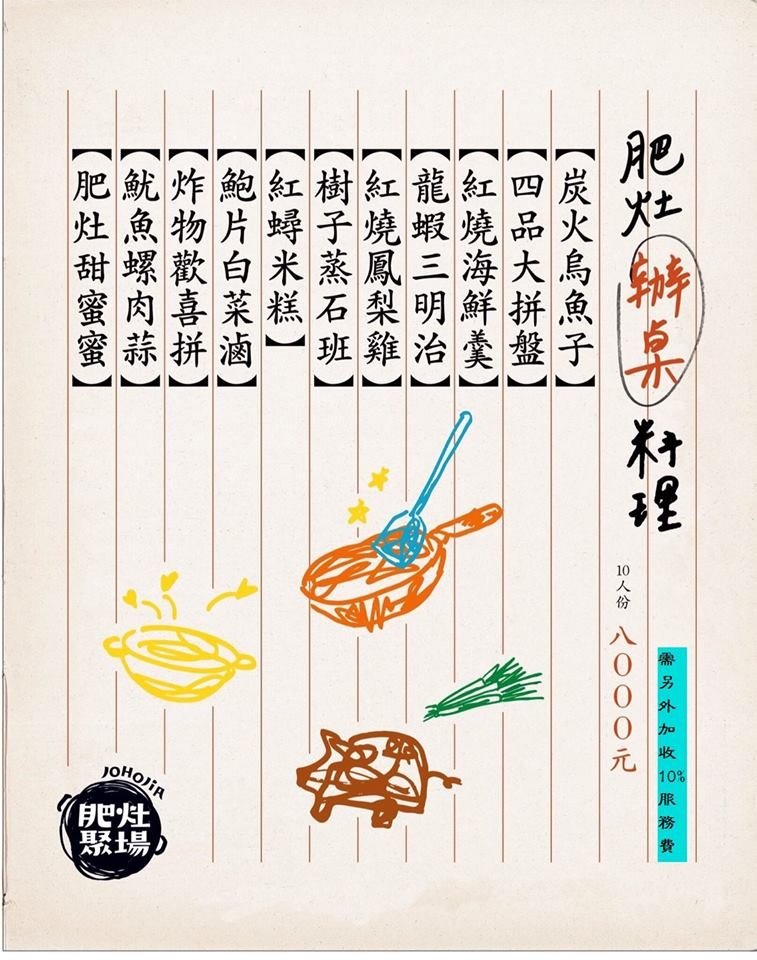 肥灶辦桌料理
10人份 八〇〇〇元
需另外加收10%服務費
【炭火烏魚子】
【四品大拼盤】
【紅燒海鮮羹】
【龍蝦三明治】
【紅燒鳳梨雞】
【樹子蒸石班】
【紅蟳米糕】
【鮑片白菜滷】
【炸物歡喜拼】
【魷魚螺肉蒜】
【肥灶甜蜜蜜】
JOHOJIA
肥灶
聚場